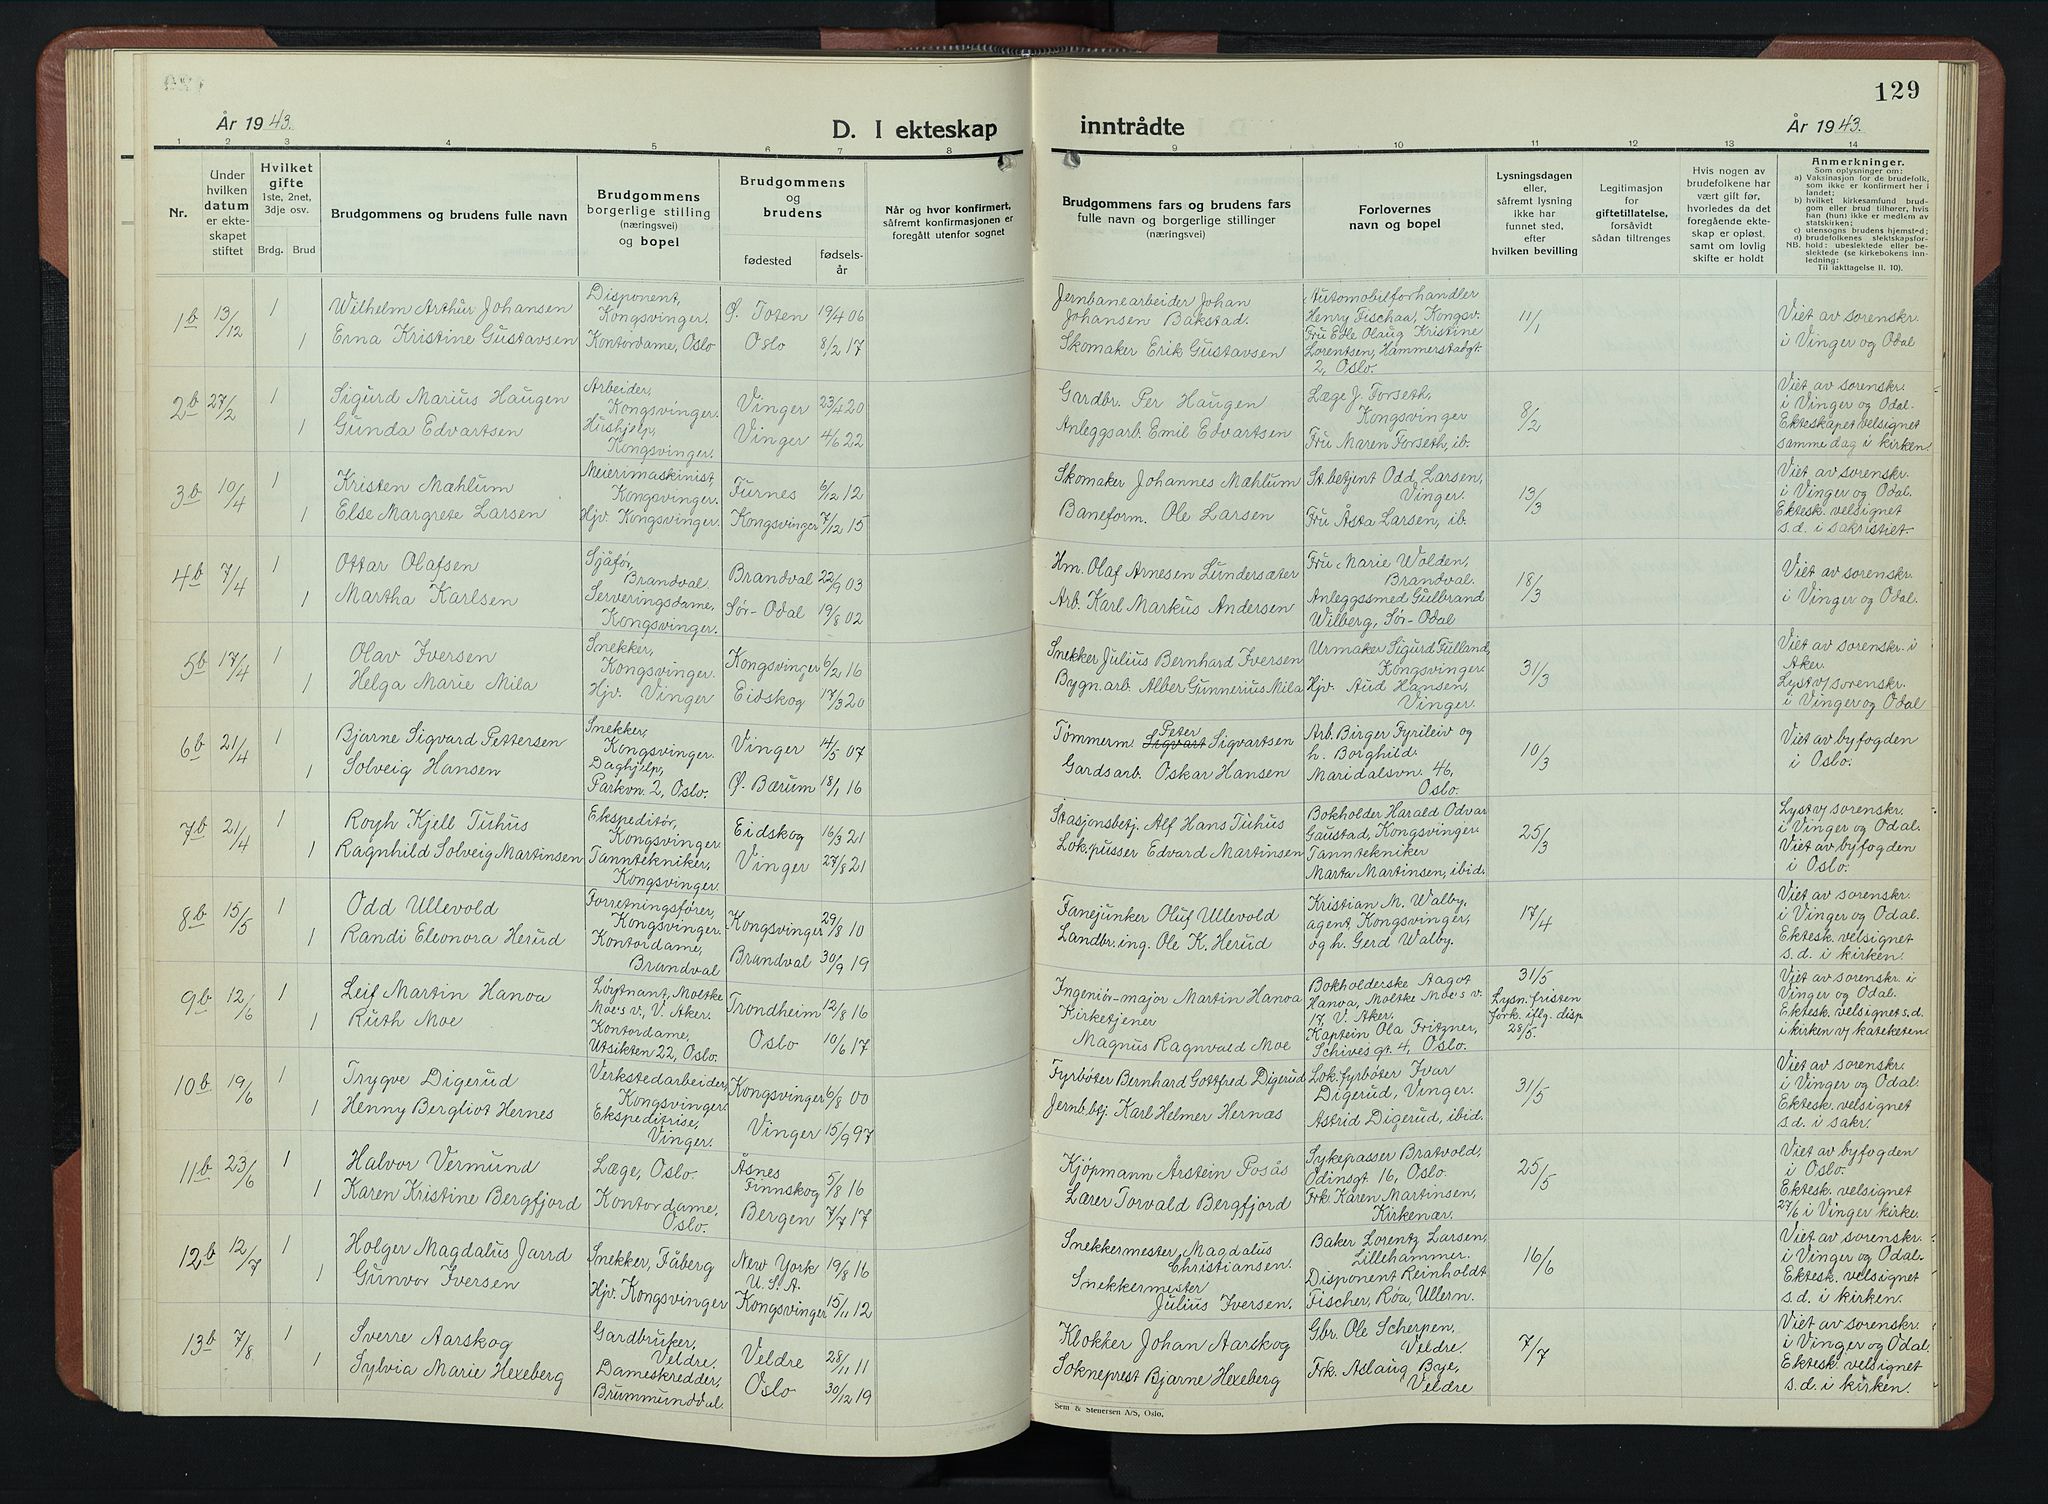 129
År 1943.
D. I ekteskap inntrådte
År 1943.
1 2 3 4 5 6 7 8 9 10 11 12 13 14
Nr.
Under hvilken datum er ekteskapet stiftet
Hvilket gifte 1ste, 2net, 3dje osv.
Brdg. Brud
Brudgommens og brudens fulle navn
Brudgommens borgerlige stilling (næringsvei) og bopel
Brudgommens og brudens
fødested
fødselsår
Når og hvor konfirmert, såfremt konfirmasjonen er foregått utenfor sognet
Brudgommens fars og brudens fars fulle navn og borgerlige stillinger (næringsvei)
Forlovernes navn og bopel
Lysningsdagen eller, såfremt lysning ikke har funnet sted, efter hvilken bevilling
Legitimasjon for giftetillatelse, forsåvidt sådan tiltrenges
Hvis nogen av brudefolkene har vært gift før, hvorledes da det foregående ekteskap er opløst, samt om lovlig skifte er holdt
Anmerkninger.
Som oplysninger om:
a) Vaksinasjon for de brudefolk, som ikke er konfirmert her i landet;
b) hvilket kirkesamfund brudgom eller brud tilhører, hvis han (hun) ikke er medlem av statskirken;
c) utensogns brudens hjemsted;
d) brudefolkenes slektskapsforhold: ubeslektede eller beslektede (se kirkebokens innledning:
NB.
Til iakttagelse II. 10).
1b 13/12 1 Wilhelm Arthur Johansen Disponent, Kongsvinger. Ø. Toten 19/4 06 Jernbanearbeider Johan Johansen Bakstad. Automobilforhandler Henry Fischaa, Kongsv. 11/1 Viet av sorenskr. i Vinger og Odal
1 Erna Kristine Gustavsen Kontordame, Oslo Oslo 8/2 17 Skomaker Erik Gustavsen Fru Edle Olaug Kristine Lorentsen, Hammerstadgt. 2, Oslo.
2b 27/2 1 Sigurd Marius Haugen Arbeider, Kongsvinger. Vinger 23/4 20 Gardbr. Per Haugen Læge J. Forseth, Kongsvinger 8/2 Viet av sorenskr. i Vinger og Odal. Ekteskapet velsignet samme dag i kirken.
1 Gunda Edvartsen Hushjelp, Kongsvinger. Vinger 4/6 22 Anleggsarb. Emil Edvartsen Fru Maren Forseth, ib.
3b 10/4 1 Kristen Mæhlum Meierimaskinist Kongsvinger. Furnes 6/12 12 Skomaker Johannes Mæhlum St.betjent Odd Larsen, Vinger. 13/3 Viet av sorenskr. i Vinger og Odal. Ektesk. velsignet s.d. i sakristiet.
1 Else Margrete Larsen Hjv. Kongsvinger. Kongsvinger 7/12 15 Baneform. Ole Larsen Fru Åsta Larsen, ib.
4b 7/4 1 Ottar Olafsen Sjåfør, Brandval. Brandval 22/9 03 Hm. Olaf Arnesen Lundersæter Fru Marie Wolden, Brandval. 18/3 Viet av sorenskr. i Vinger og Odal.
1 Martha Karlsen Serveringsdame, Kongsvinger. Sør-Odal 19/8 02 Arb. Karl Markus Andersen Anleggssmed Gulbrand Wilberg, Sør-Odal
5b 17/4 1 Olav Iversen Snekker, Kongsvinger. Kongsvinger 6/2 16 Snekker Julius Bernhard Iversen Urmaker Sigurd Fulland, Kongsvinger. 31/3 Viet av sorenskr. i Aker. Lyst v/ sorenskr. i Vinger og Odal
1 Helga Marie Mila Hjv. Vinger Eidskog 17/3 20 Bygn.arb. Alber Gunnerius Mila Hjv. Aud Hansen, Vinger.
6b 21/4 1 Bjarne Sigvard Pettersen Snekker, Kongsvinger. Vinger 14/5 07 Tømmerm. Peter Sigvart Sigvartsen Arb. Birger Fyrileiv og h. Borghild. 10/3 Viet av byfogden i Oslo.
1 Solveig Hansen Daghjelp, Parkvn. 2, Oslo. Ø. Bærum 18/1 16 Gardsarb. Oskar Hansen Maridalsvn. 46, Oslo.
7b 21/4 1 Royh Kjell Tuhus Ekspeditør, Kongsvinger. Eidskog 16/3 21 Stasjonsbetj. Alf Hans Tuhus Bokholder Harald Odvar Gaustad, Kongsvinger. 25/3 Lyst v/ sorenskr. i Vinger og Odal. Viet av byfogden i Oslo.
1 Ragnhild Solveig Martinsen Tanntekniker, Kongsvinger. Vinger 27/8 21 Lok.pusser Edvard Martinsen Tanntekniker Marta Martinsen, ibid.
8b 15/5 1 Odd Ullevold Forretningsfører, Kongsvinger. Kongsvinger 29/8 10 Fanejunker Oluf Ullevold Kristian M. Walby, agent, Kongsvinger, og h. Gerd Walby. 17/4 Viet av sorenskr. i Vinger og Odal. Ektesk. velsignet s.d. i kirken.
1 Randi Eleonora Herud Kontordame, Brandval Brandval 30/9 19 Landbr.ing. Ole K. Herud
9b 12/6 1 Leif Martin Hanoa Løytnant, Moltke Moe's v., V. Aker. Trondheim 12/8 16 Ingeniør-major Martin Hanoa Bokholderske Aagot Hanoa, Moltke Moe's v. 17, V. Aker. 31/5 Lysn.fristen fork. iflg. disp 28/5. Viet av sorenskr. i Vinger og Odal. Ektesk. velsignet s.d. i kirken v/ kateketen.
1 Ruth Moe Kontordame, Utsikten 22, Oslo. Oslo 10/6 17 Kirketjener Magnus Ragnvald Moe Kaptein Ola Fritzner, Schives gt. 4, Oslo.
10b 19/6 1 Trygve Digerud Verkstedarbeider, Kongsvinger. Kongsvinger 6/8 00 Fyrbøter Bernhard Gottfred Digerud Lok.fyrbøter Ivar Digerud, Vinger. 31/5 Viet av sorenskr. i Vinger og Odal. Ektesk. velsignet s.d. i sakr.
1 Henny Bergliot Hernes Ekspeditrise, Vinger. Vinger 15/9 97 Jernb.btj. Karl Helmer Hernæs Astrid Digerud, ibid.
11b 23/6 1 Halvor Vermund Læge, Oslo. Åsnes Finnskog 5/8 16 Kjøpmann Årstein Posås Sykepasser Bratvold, Odinsgt 16, Oslo. 25/5 Viet av byfogden i Oslo. Ektesk. velsignet 27/6 i Vinger kirke.
1 Karen Kristine Bergfjord Kontordame, Oslo. Bergen 7/7 17 Lærer Torvald Bergfjord Frk. Karen Martinsen, Kirkenær.
12b 12/7 1 Holger Magdalus Jarrd Snekker, Fåberg New York U.S.A. 19/8 16 Snekkermester Magdalus Christiansen. Baker Lorentz Larsen, Lillehammer. 16/6 Viet av sorenskr. i Vinger og Odal. Ektesk. velsignet s.d. i kirken.
1 Gunvor Iversen Hjv. Kongsvinger Kongsvinger 15/11 12 Snekkermester Julius Iversen. Disponent Reinholdt Fischer, Røa, Ullern.
13b 7/8 1 Sverre Aarskog Gardbruker, Veldre. Veldre 28/11 11 Klokker Johan Aarskog Gbr. Ole Scherpen, Veldre. 7/7 Viet av sorenskr. i Vinger og Odal. Ektesk. velsignet s.d. i kirken.
1 Sylvia Marie Hexeberg Dameskredder, Brummunddal. Oslo 30/12 19 Sokneprest Bjarne Hexeberg Frk. Aslaug Bye, Veldre
Sem & Stenersen A/S, Oslo.